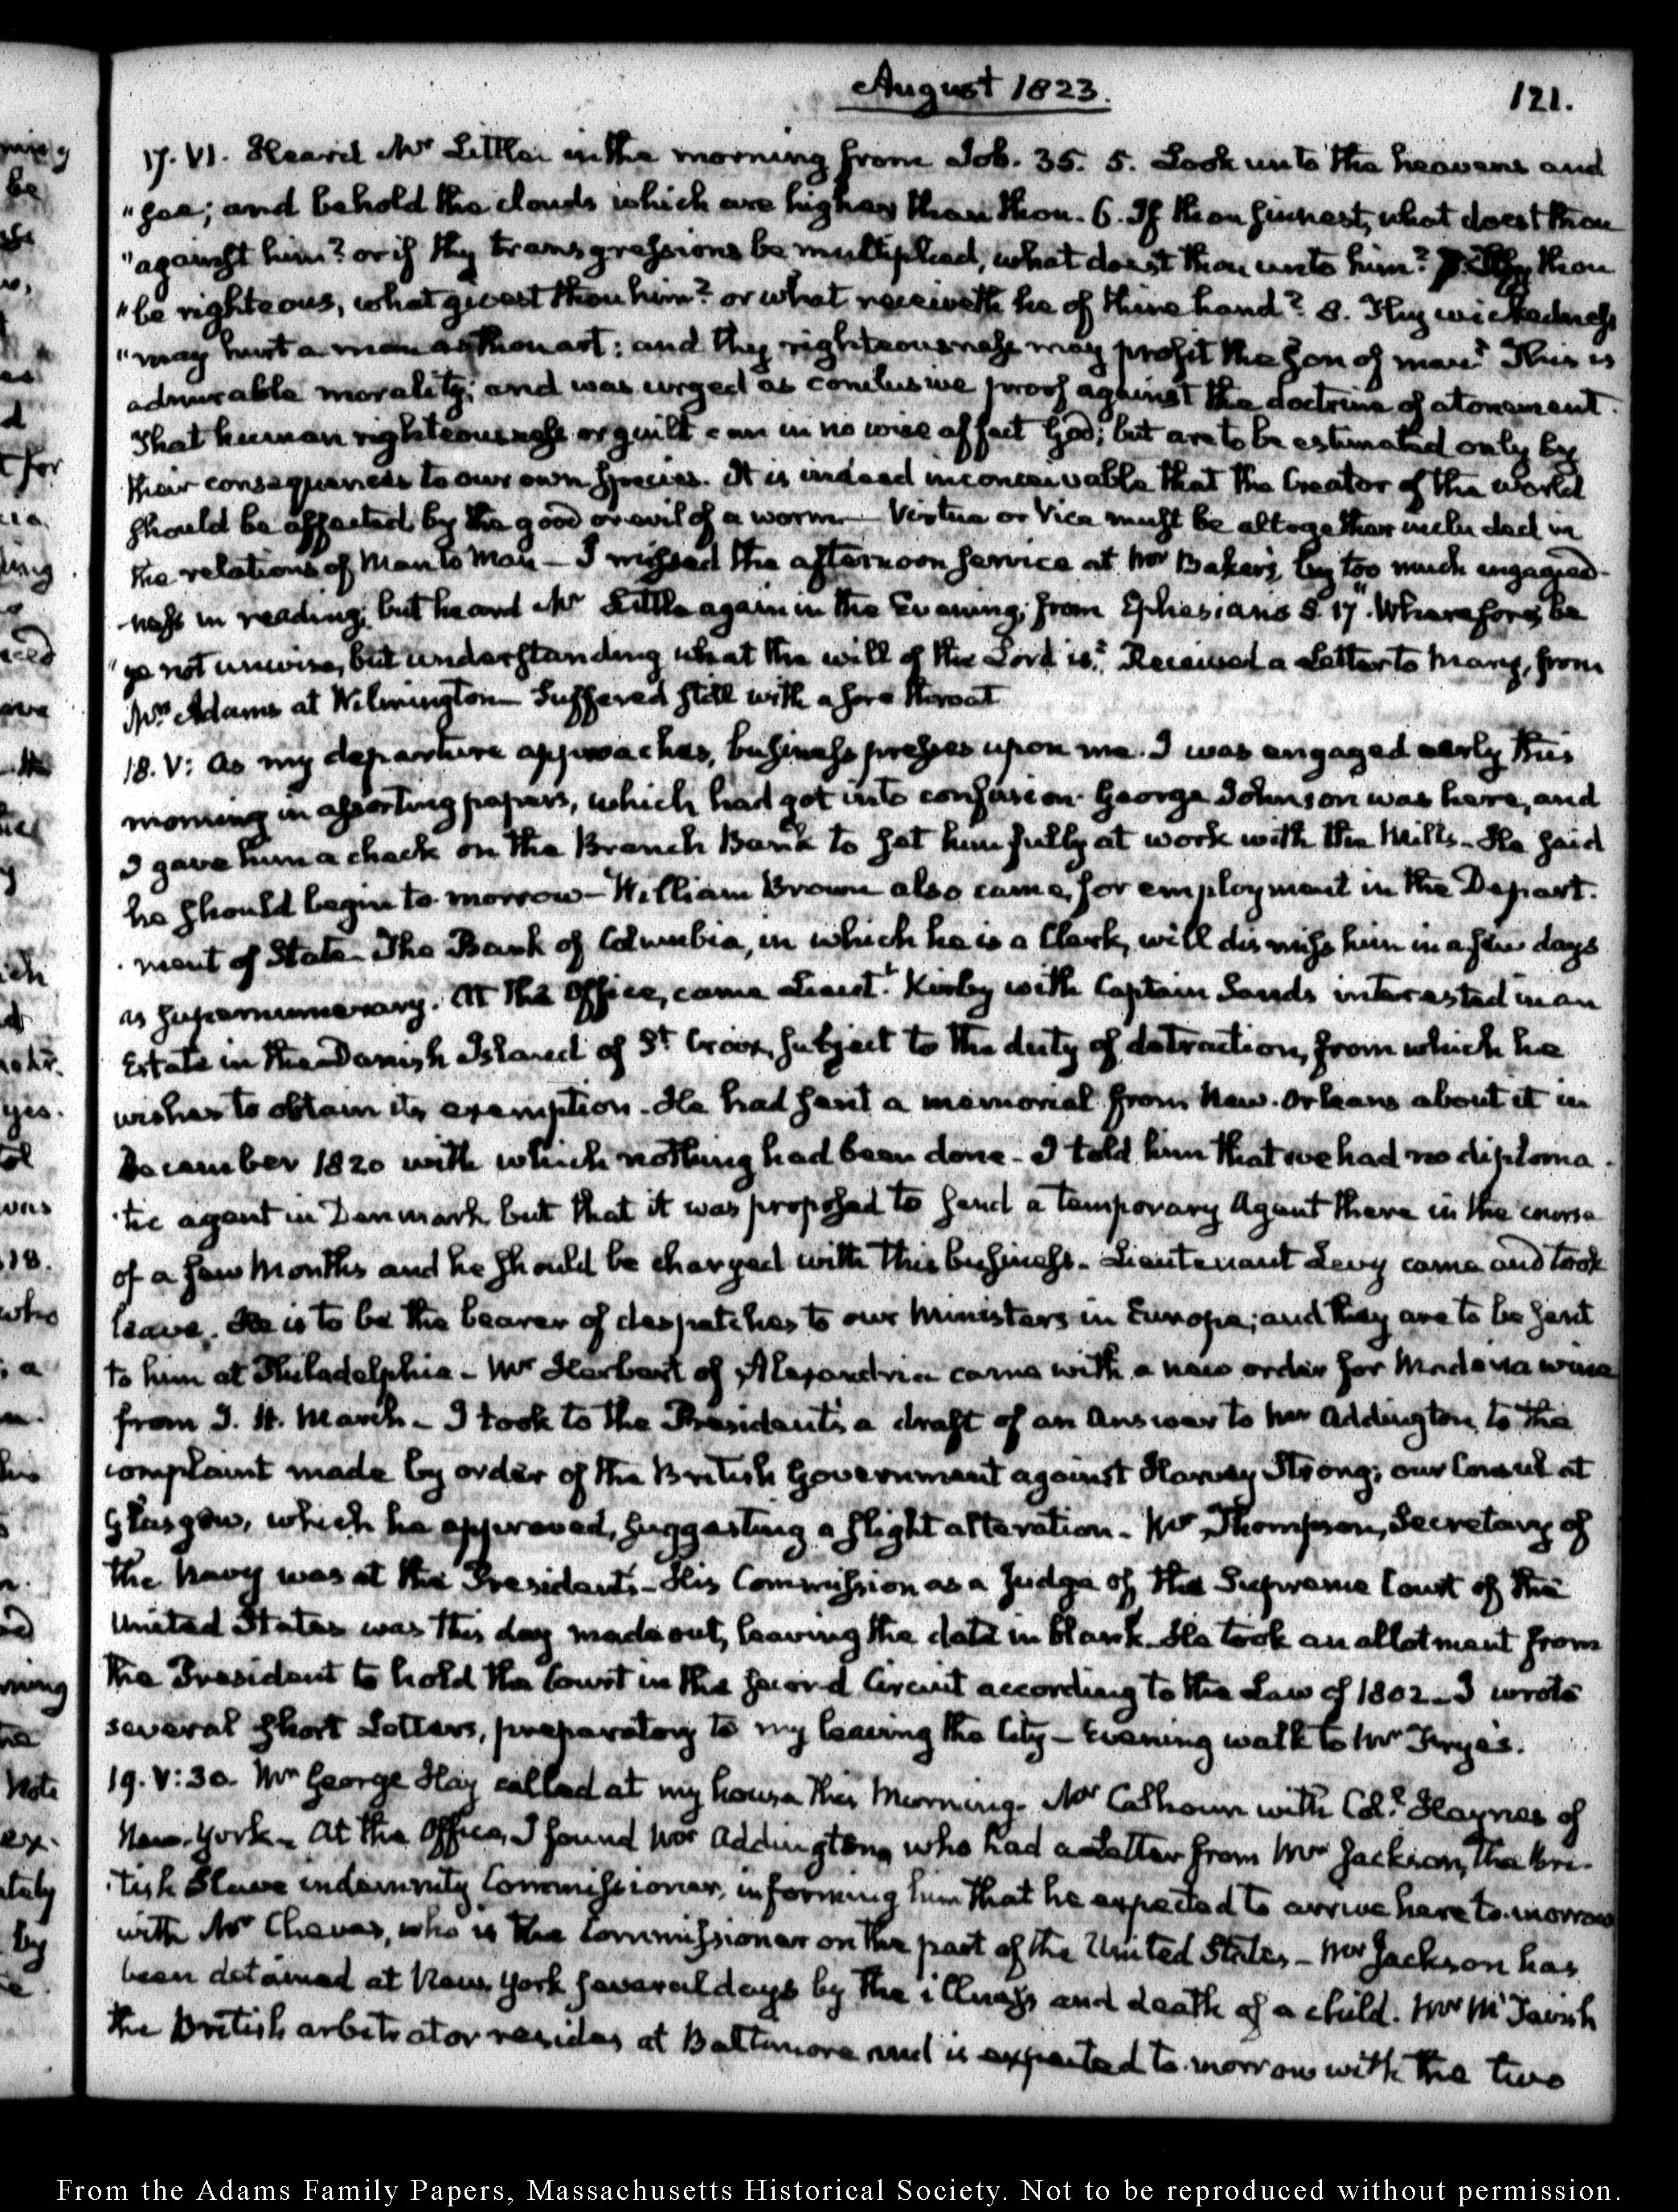 August 1823.
121.
17. VI. Heard Mr Little in the morning from Job. 35. 5. Look unto the heavens and
"see; and behold the clouds which are higher than thou. 6. If thou sinnest, what doest thou
"against him? or if thy transgressions be multiplied, what doest thou unto him? 7. If thou
"be righteous, what givest thou him? or what receiveth he of thine hand? 8. Thy wickedness
"may hurt a man as thou art: and thy righteousness may profit the son of man." This is
admirable morality; and was urged as conclusive proof against the doctrine of atonement.
That human righteousness or guilt can in no wise affect God; but are to be estimated only by
their consequences to our own species. It is indeed inconceivable that the Creator of the world
should be affected by the good or evil of a worm— Virtue or Vice must be altogether included in
the relations of Man to Man— I missed the afternoon service at Mr Baker's, by too much engaged-
-ness in reading; but heard Mr Little again in the Evening; from Ephesians 5. 17. "Wherefore, be
"ye not unwise, but understanding what the will of the Lord is." Received a Letter to Mary, from
Mrs Adams at Wilmington— Suffered still with a sore throat
18. V: As my departure approaches, business presses upon me. I was engaged early this
morning in assorting papers, which had got into confusion. George Johnson was here, and
I gave him a check on the Branch Bank to set him fully at work with the Mills— He said
he should begin to-morrow— William Brown also came, for employment in the Depart-
-ment of State. The Bank of Columbia, in which he is a Clerk, will dismiss him in a few days
as supernumerary. At the Office, came Lieutt. Kirby with Captain Sands interested in an
Estate in the Danish Island of St. Croix, subject to the duty of detraction, from which he
wishes to obtain its exemption. He had sent a memorial from New-Orleans about it in
December 1820 with which nothing had been done— I told him that we had no diploma-
-tic agent in Denmark but that it was proposed to send a temporary Agent there in the course
of a few Months and he should be charged with this business. Lieutenant Levy came and took
leave. He is to be the bearer of despatches to our Ministers in Europe; and they are to be sent
to him at Philadelphia— Mr Herbert of Alexandria came with a new order for Madeira wine
from J. H. March— I took to the President's a draft of an Answer to Mr Addington, to the
complaint made by order of the British Government against Harvey Strong; our Consul at
Glasgow, which he approved, suggesting a slight alteration— Mr Thompson, Secretary of
the Navy was at the President's— His Commission as a Judge of the Supreme Court of the
United States was this day made out, leaving the date in blank. He took an allotment from
the President to hold the Court in the second Circuit according to the Law of 1802— I wrote
several short Letters, preparatory to my leaving the City— Evening walk to Mr Frye's.
19. V:30. Mr George Hay called at my house this Morning. Mr Calhoun with Col. Haynes of
New-York— At the Office, I found Mr Addington, who had a Letter from Mr Jackson, the Bri-
-tish Slave indemnity Commissioner, informing him that he expected to arrive here to-morrow
with Mr Cheves, who is the Commissioner on the part of the United States— Mr Jackson has
been detained at New York several days by the illness and death of a child. Mr McTavish
the British arbitrator resides at Baltimore and is expected to-morrow with the two
From the Adams Family Papers, Massachusetts Historical Society. Not to be reproduced without permission.